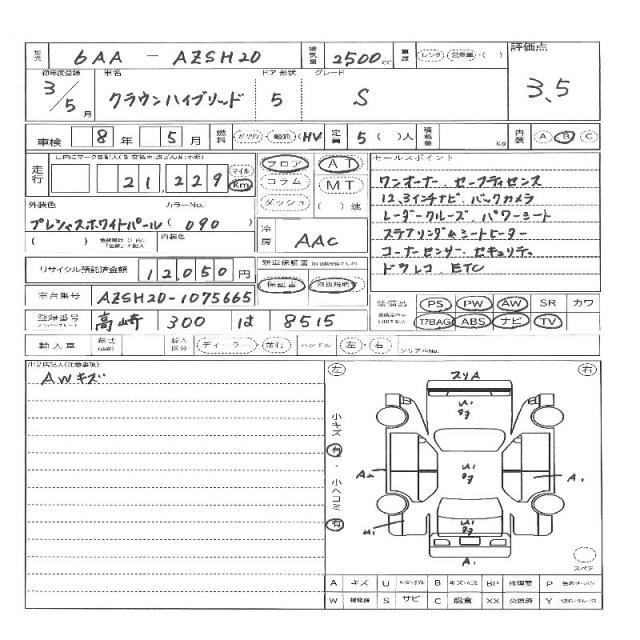 型式 6AA - AZSH20 排気量 2500cc 車歴 レンタ・営業車・( ) 評価点
初年度登録 車名 ドア 形状 グレード
3/5月 クラウンハイブリッド 5 S 3.5
車検 8年 5月 燃料 ガソリン・軽油・(HV 定員 5( )人 積載量 Kg 内装 A B C
走行 21,229 マイル Km フロア コラム ダッシュ AT MT ( )速
セールスポイント
ワンオーナー、セーフティセンス
12.3インチナビ、バックカメラ
外装色 カラーNo.
レーダークルーズ、パワーシート
プレシャスホワイトパール( 090 )
ステアリング&シートヒーター
( ) 内装色 冷房 AAC
コーナーセンサー、セキュリティ
ドラレコ、ETC
リサイクル預託済金額 12,050円 新車保証書 保証書 取扱説明書
車台番号 AZSH20-1075665
装備品 PS PW AW SR カワ
登録番号 高崎 300 は 8515
ABS ナビ TV
輸入車 年式 輸入区分 ディーラー・並行 ハンドル 左・右 シリアルNo.
AWキズ
左 右
スリA
小キズ 有・小ヘコミ 有
A2
A1
U1
A1
スペア
A キズ U B キズ・ヘコミ BP 修理要 P
W 補修跡 S サビ C 腐食 XX 交換済 Y